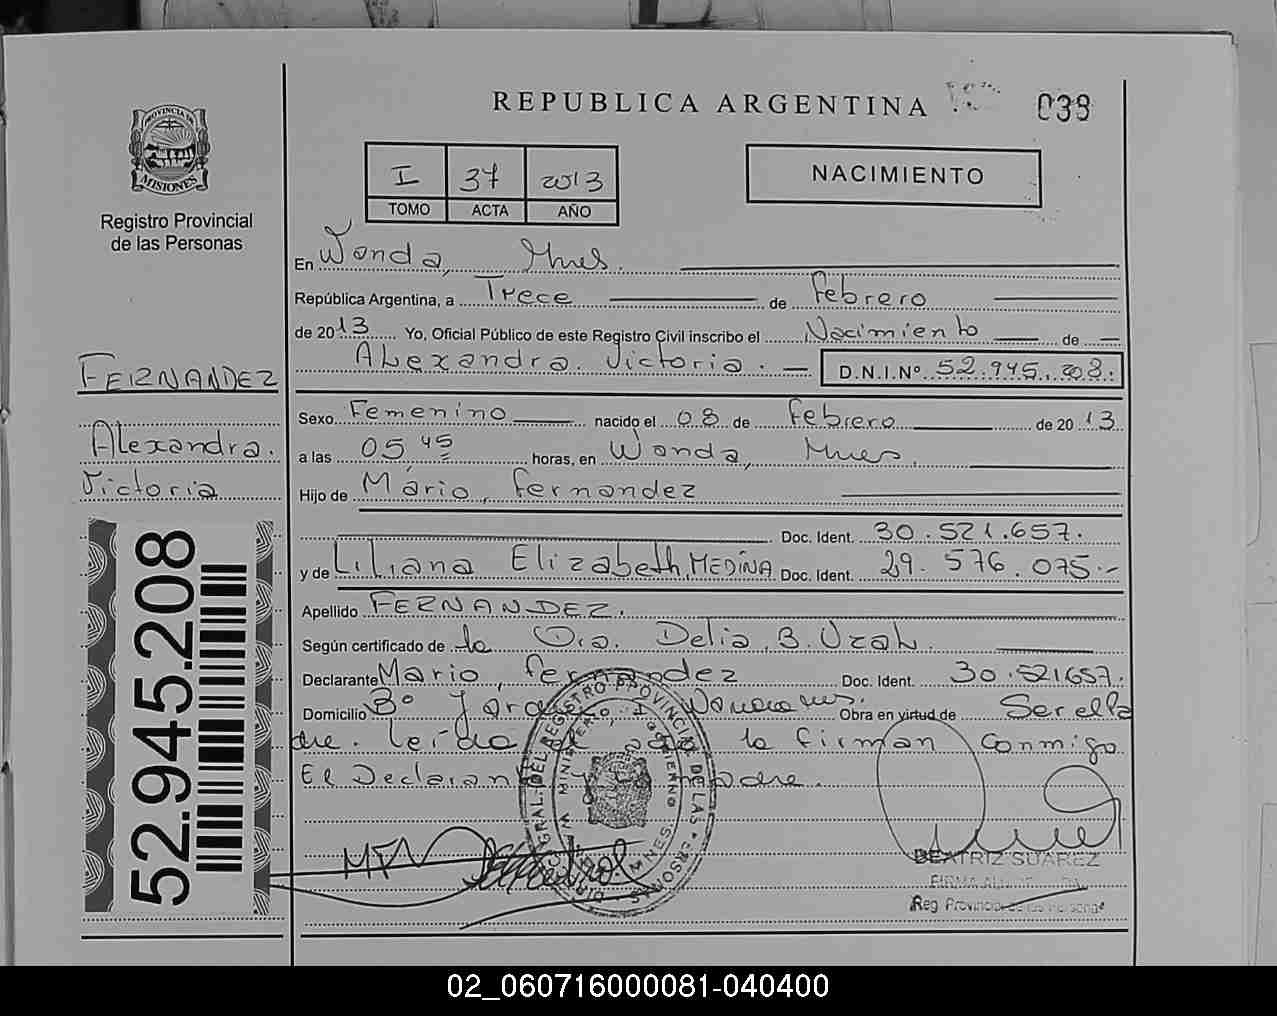 REPUBLICA ARGENTINA
038
PROVINCIA DE
MISIONES
Registro Provincial
de las Personas
I 37 2013
TOMO ACTA AÑO
NACIMIENTO
En Wanda, Mnes.
República Argentina, a Trece de Febrero
de 2013 Yo, Oficial Público de este Registro Civil inscribo el Nacimiento de
Alexandra Victoria. D.N.I.Nº 52.945.208.
FERNANDEZ
Alexandra
Victoria
52.945.208
Sexo Femenino nacido el 08 de Febrero de 2013
a las 05 45 horas, en Wanda, Mnes.
Hijo de Mario, Fernandez
Doc. Ident. 30.521.657.
y de Liliana Elizabeth, MEDINA Doc. Ident. 29.576.075.-
Apellido FERNANDEZ.
Según certificado de la Dra. Delia B.
Declarante Mario, Fernandez Doc. Ident. 30.521657.
Domicilio Bº Obra en virtud de Ser el Pa
dre. leída la firman conmigo
El Declarante Padre.
BEATRIZ SUAREZ
Reg. Provincial de las Personas
02_060716000081-040400